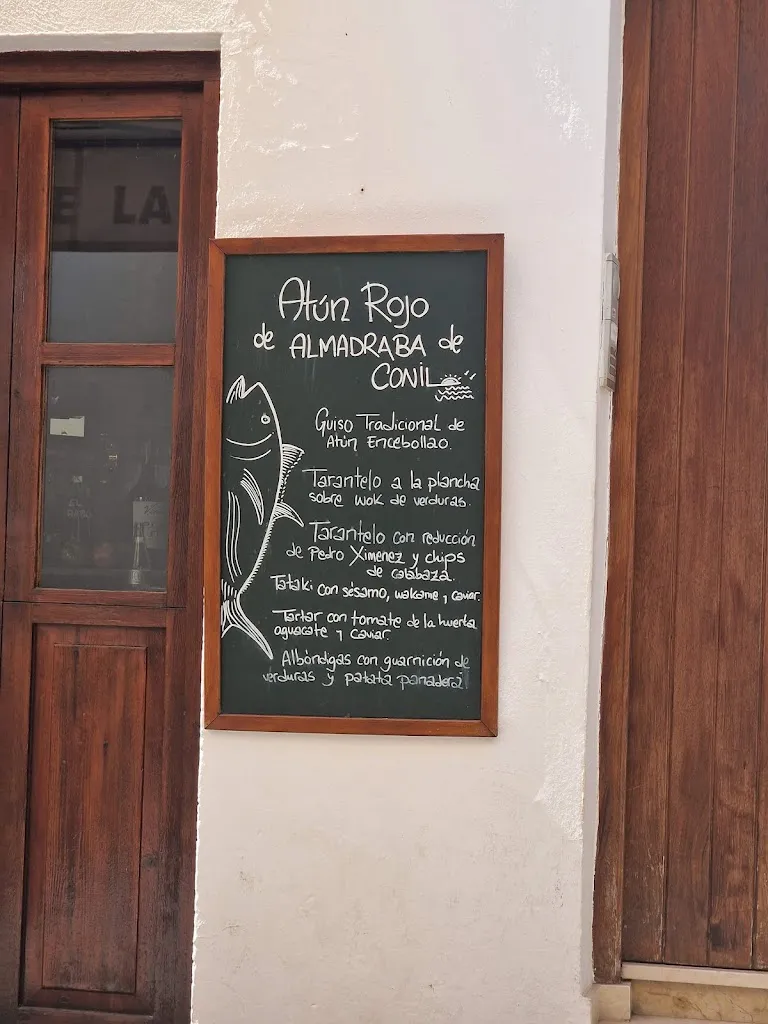 E LA
Atún Rojo
de ALMADRABA de
CONIL
Guiso Tradicional de
Atún Encebollao.
Tarantelo a la plancha
sobre wok de verduras.
Tarantelo con reducción
de Pedro Ximenez y chips
de calabaza.
Tataki con sésamo, wakame y caviar.
Tartar con tomate de la huerta
aguacate y caviar.
Albóndigas con guarnición de
verduras y patata panadera